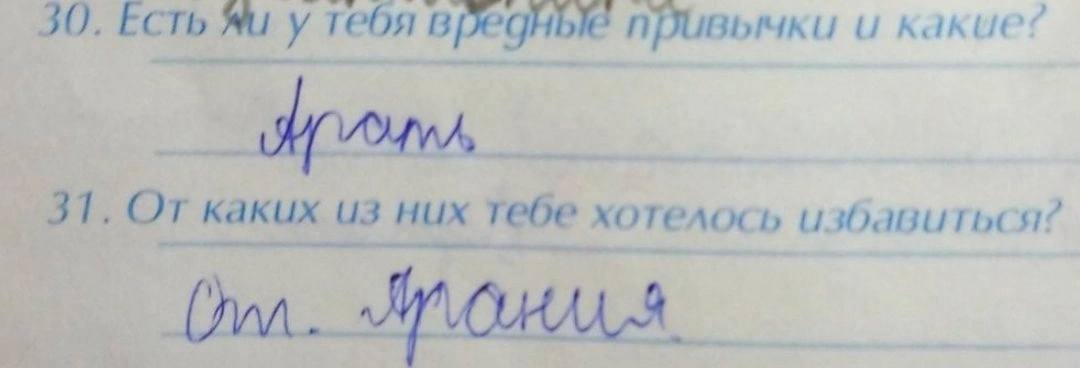 30. Есть ли у тебя вредные привычки и какие?
Арать
31. От каких из них тебе хотелось избавиться?
От. Арания